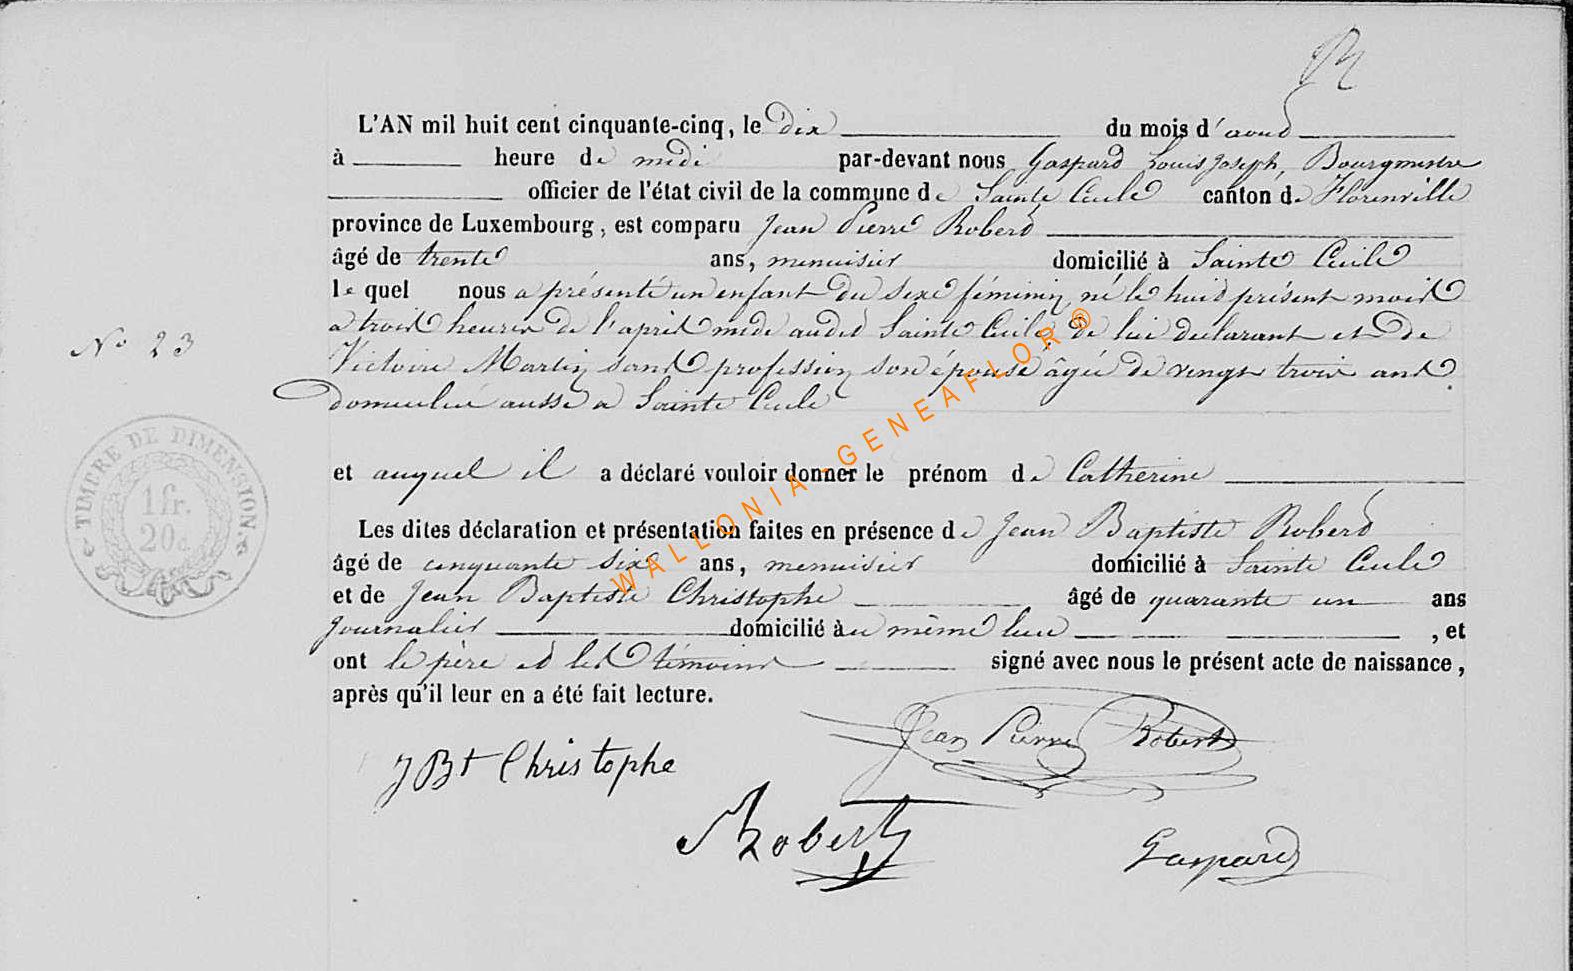 L'AN mil huit cent cinquante-cinq, le dix du mois d'aout
à heure de midi par-devant nous Gaspard Louis Joseph, Bourgmestre
officier de l'état civil de la commune de Sainte Cecile canton de Florenville
province de Luxembourg, est comparu Jean Pierre Robert
âgé de trente ans, menuisier domicilié à Sainte Cecile
le quel nous a présenté un enfant du sexe féminin, né le huit présent mois
a trois heures de l'après midi audit Sainte Cecile, de lui declarant et de
N° 23
Victoire Martin sans profession son épouse âgée de vingt trois ans
domiciliée aussi a Sainte Cecile
et auquel il a déclaré vouloir donner le prénom de Catherine
TIMBRE DE DIMENSION
1 fr.
20 c
Les dites déclaration et présentation faites en présence de Jean Baptiste Robert
âgé de cinquante six ans, menuisier domicilié à Sainte Cecile
et de Jean Baptiste Christophe âgé de quarante un ans
journalier domicilié au même lieu , et
ont le père et les témoins signé avec nous le présent acte de naissance,
après qu'il leur en a été fait lecture.
Jean Pierre Robert
J Bt Christophe
Robert
Gaspard
WALLONIA-GENEAFLOR®